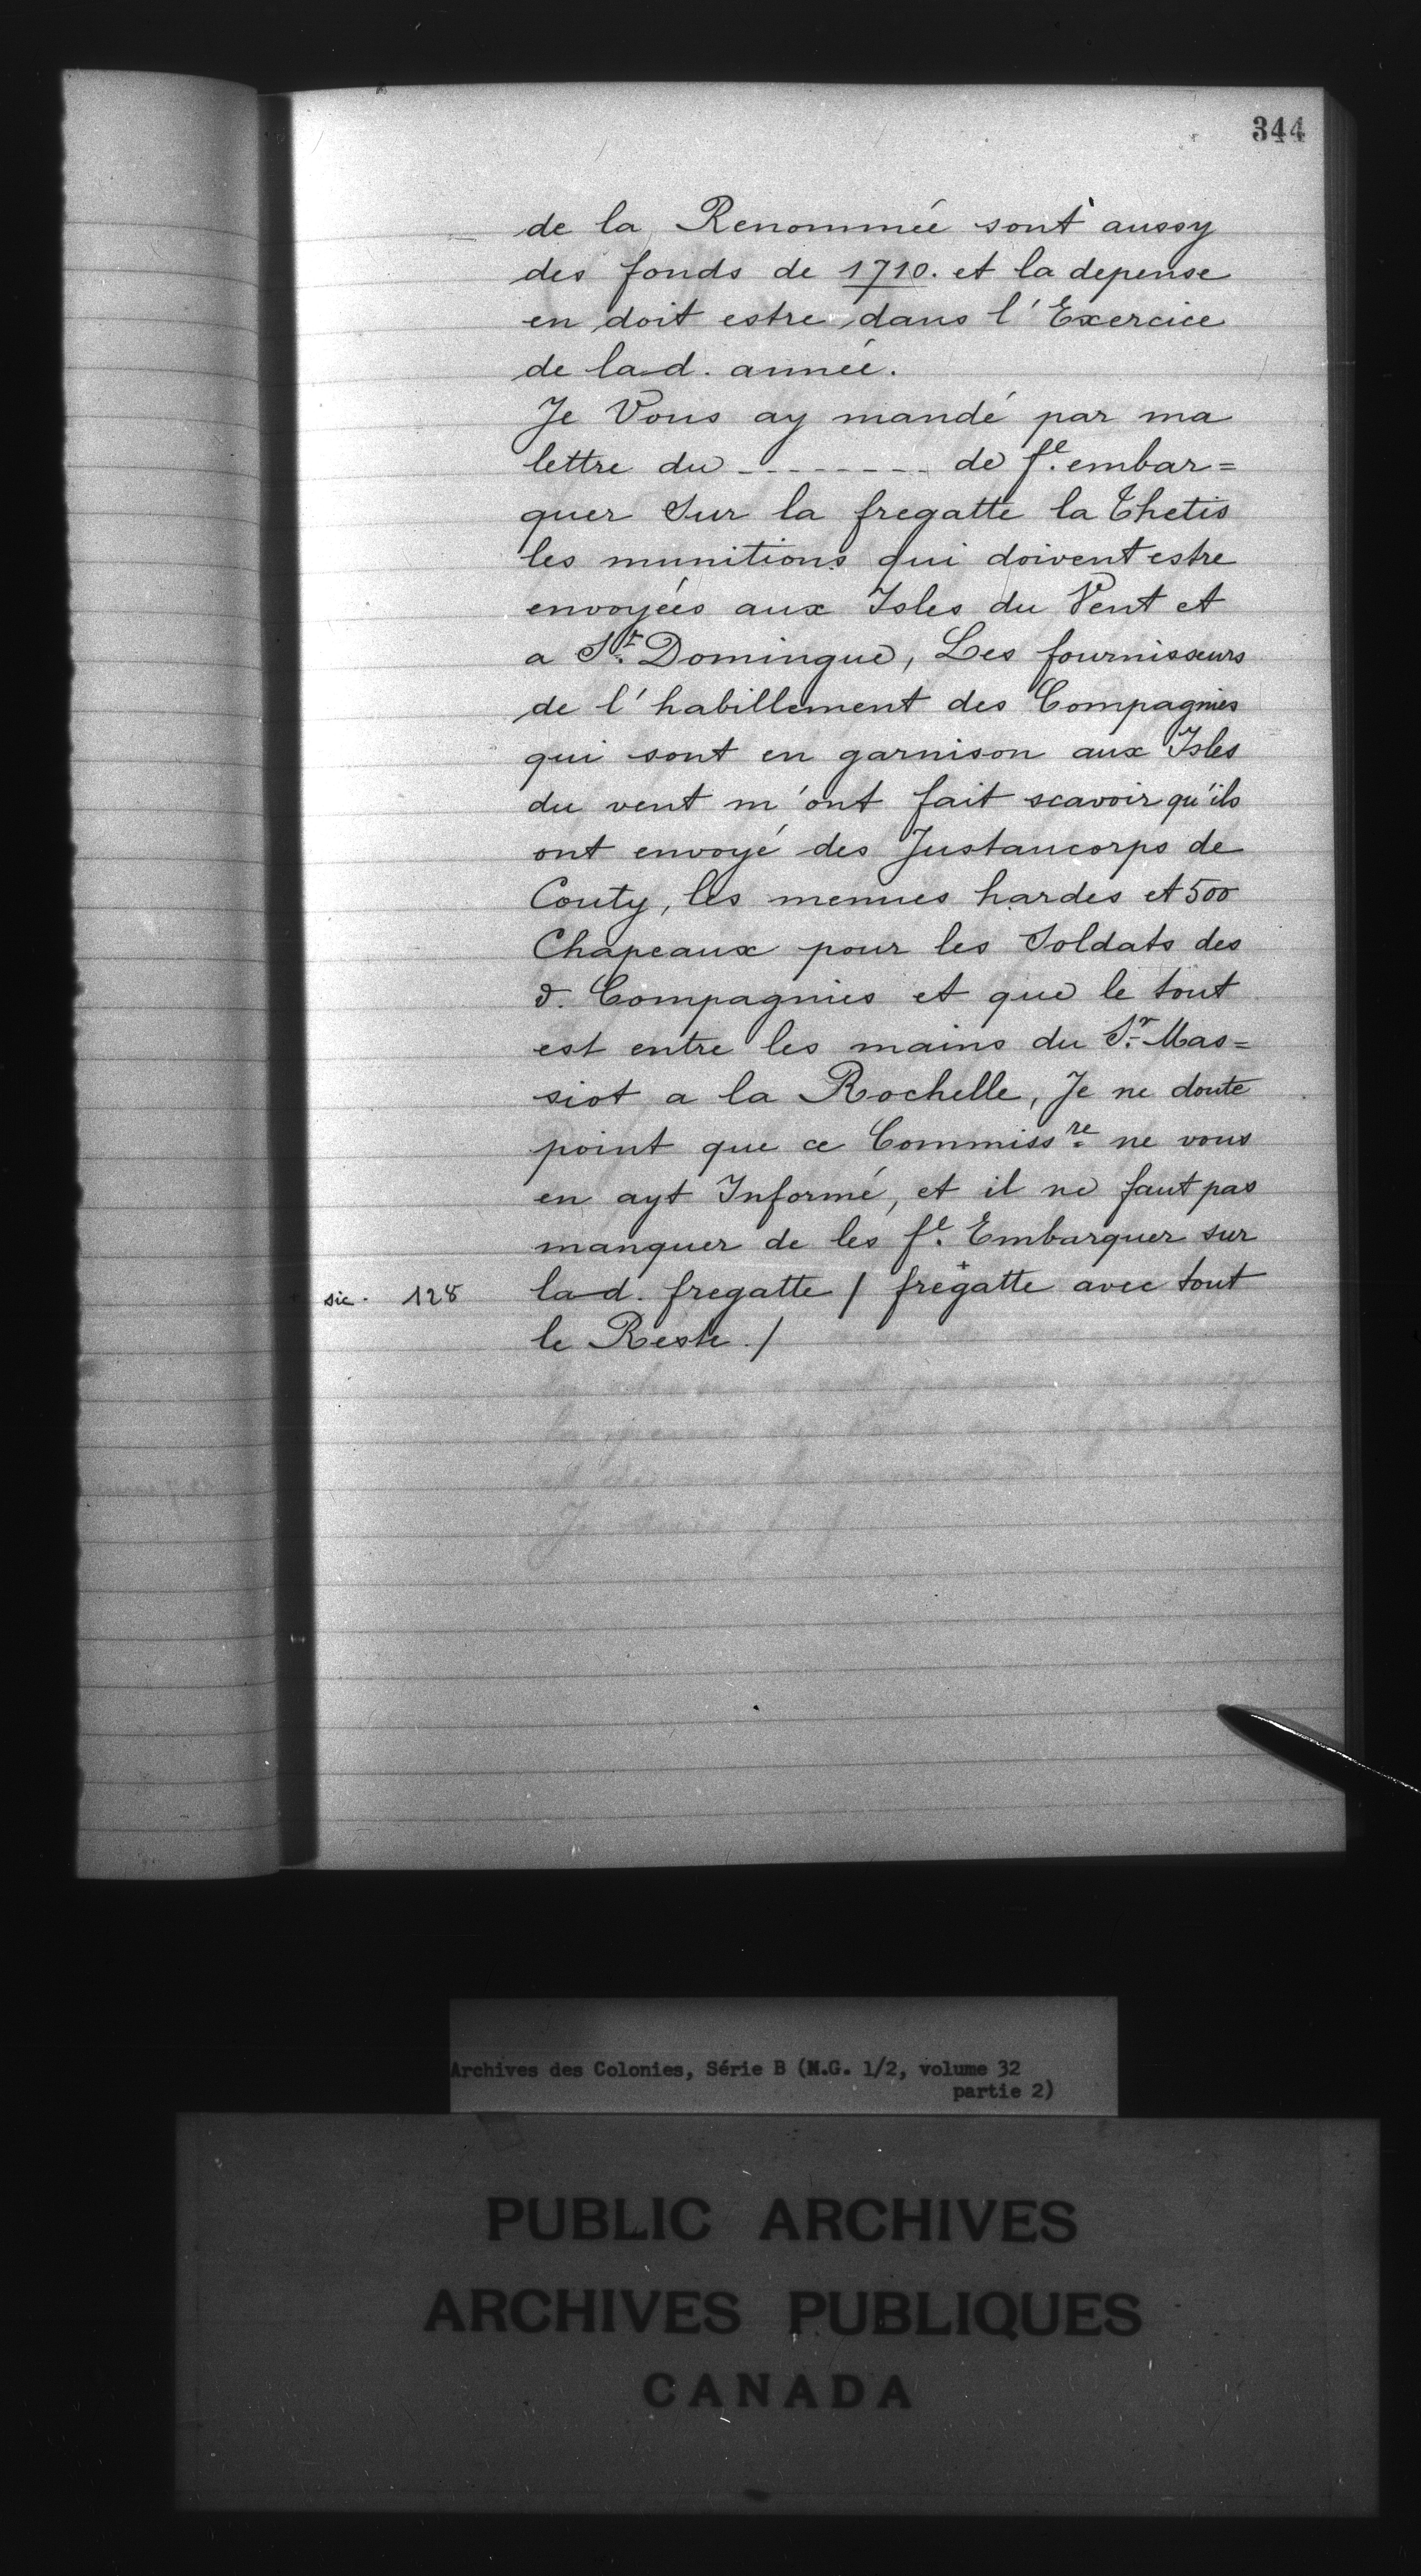 344
de la Renommée sont aussy
des fonds de 1710. et la depense
en doit estre dans l'Exercice
de lad. année.
Je Vous ay mandé par ma
lettre du -------- de fe. embar=
quer Sur la fregatte la Thetis
les munitions qui doivent estre
envoyées aux Isles du Vent et
a St. Domingue, Les fournisseurs
de l'habillement des Compagnies
qui sont en garnison aux Isles
du vent m'ont fait scavoir qu'ils
ont envoyé des Justaucorps de
Couty, les menues hardes et 500
Chapeaux pour les Soldats des
d. Compagnies et que le tout
est entre les mains du Sr. Mas=
siot a la Rochelle, Je ne doute
point que ce Commissre ne vous
en ayt Informé, et il ne faut pas
manquer de les fe. Embarquer sur
sic. 128 lad. fregatte / fregatte avec tout
le Reste ./
Archives des Colonies, Série B (M.G. 1/2, volume 32
partie 2)
PUBLIC ARCHIVES
ARCHIVES PUBLIQUES
CANADA